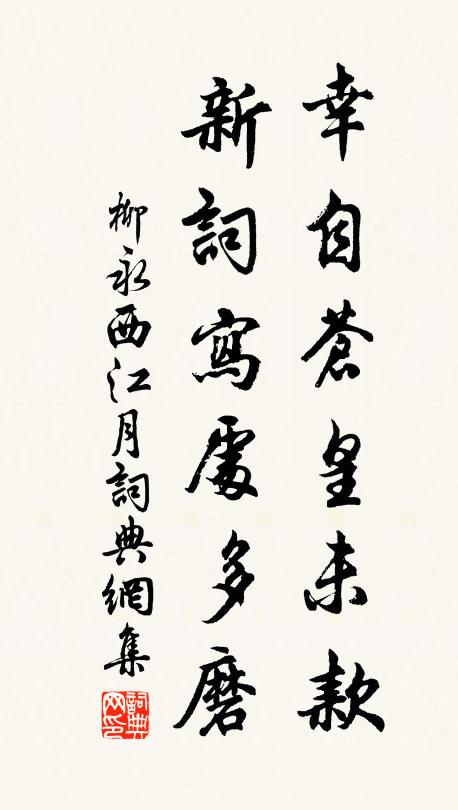 幸自蒼皇未款
新詞寫處多磨
柳永西江月詞典網集
詞典网印